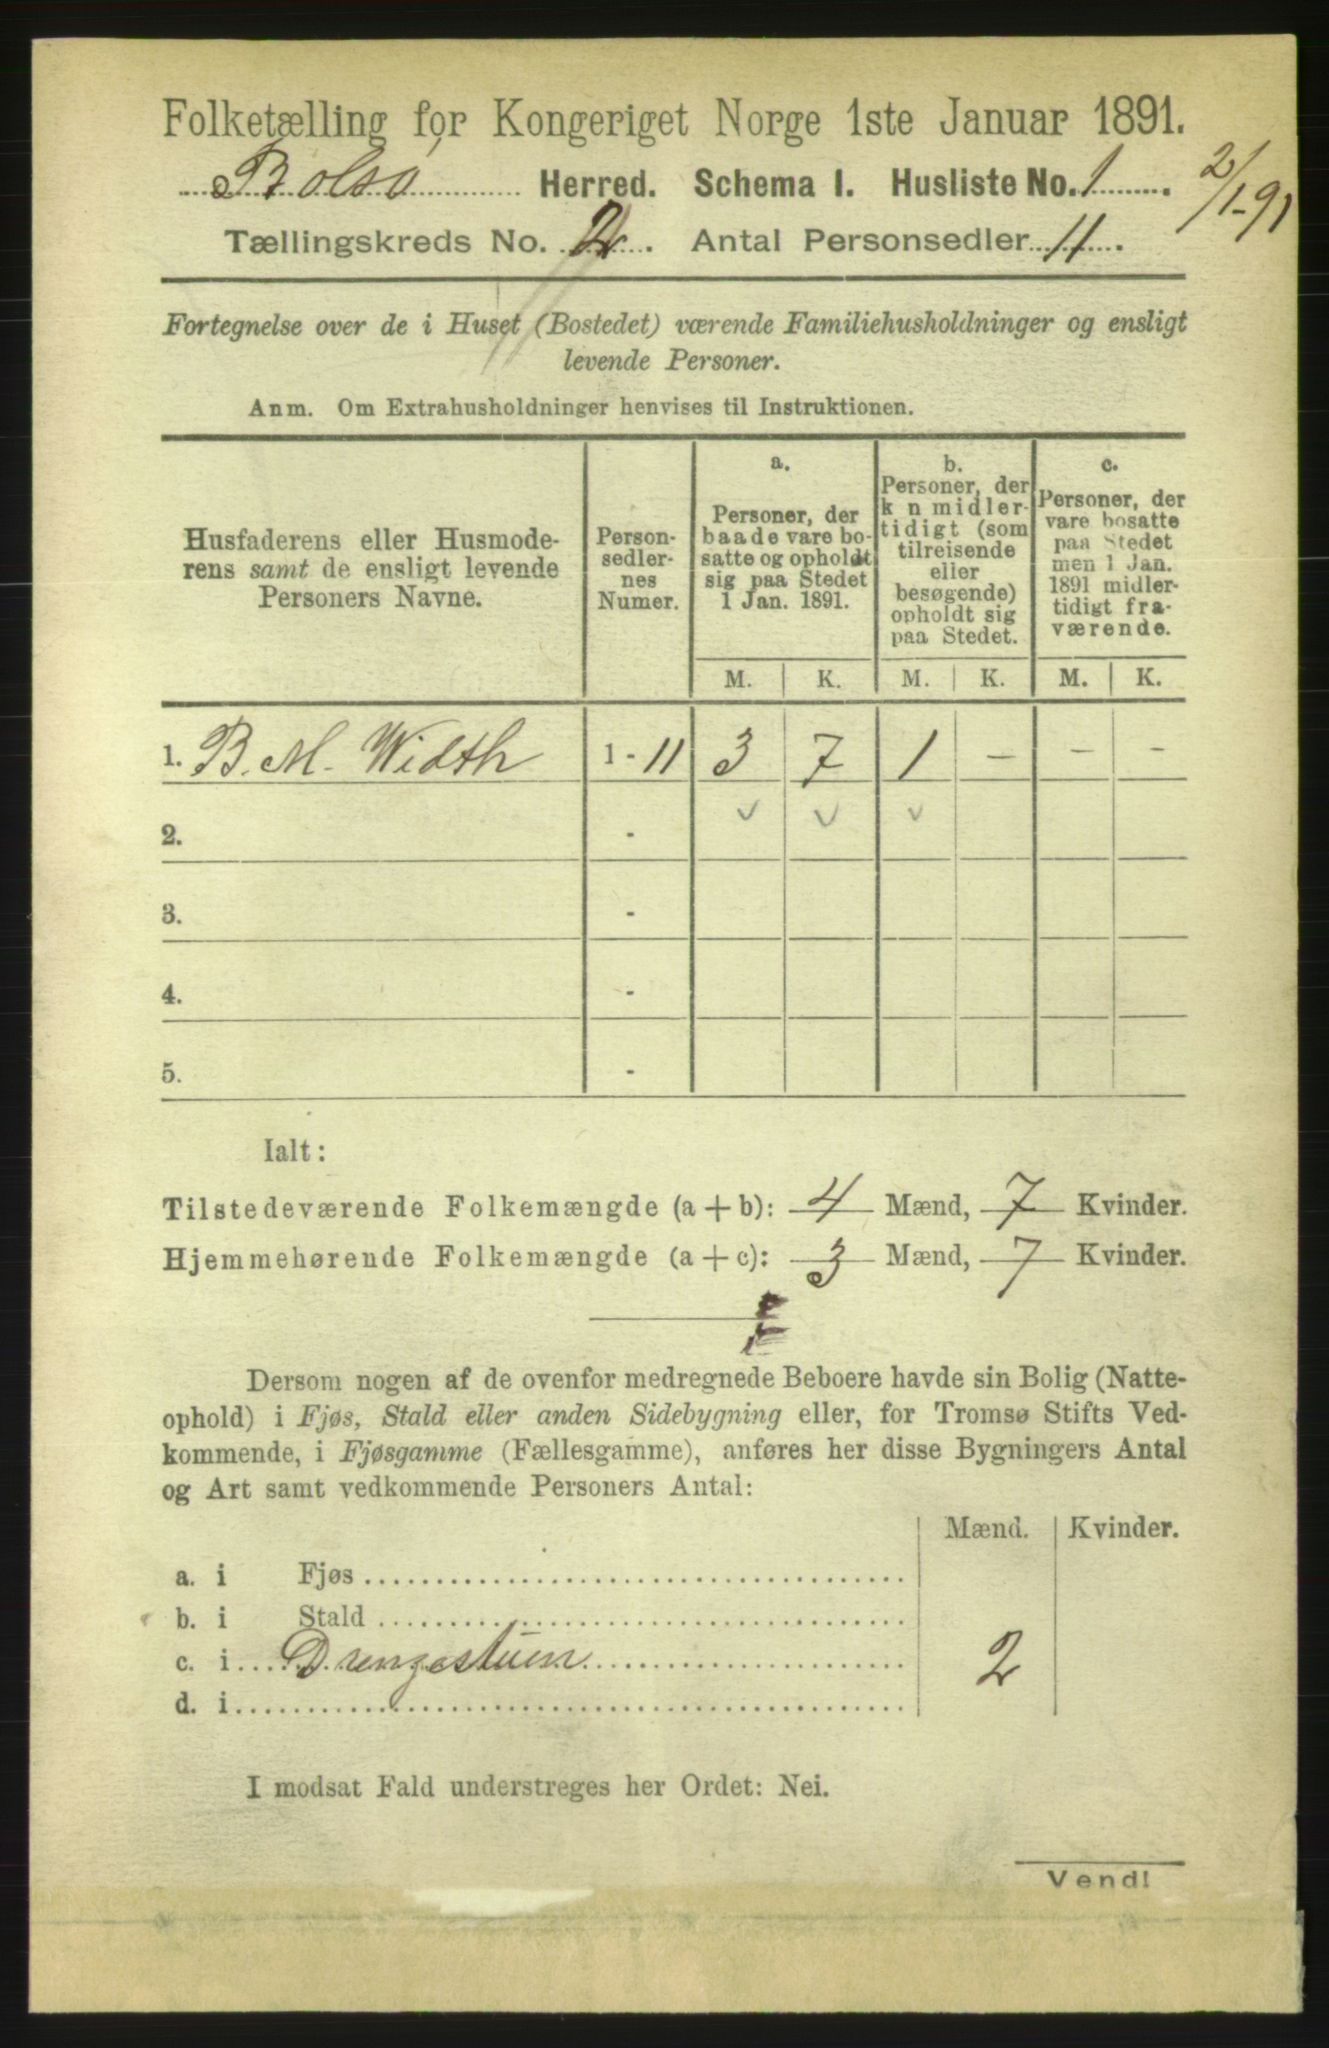 Folketælling for Kongeriget Norge 1ste Januar 1891.
Bolsø Herred. Schema I. Husliste No. 1. 2/1-91
Tællingskreds No. 2. Antal Personsedler 11.
Fortegnelse over de i Huset (Bostedet) værende Familiehusholdninger og ensligt
levende Personer.
Anm. Om Extrahusholdninger henvises til Instruktionen.
Husfaderens eller Husmode-
rens samt de ensligt levende
Personers Navne.
Person-
sedler-
nes
Numer.
a.
Personer, der
baade vare bo-
satte og opholdt
sig paa Stedet
1 Jan. 1891.
b.
Personer, der
k n midler-
tidigt (som
tilreisende
eller
besøgende)
opholdt sig
paa Stedet.
c.
Personer, der
vare bosatte
paa Stedet
men 1 Jan.
1891 midler-
tidigt fra-
værende.
M. K. M. K. M. K.
1. B. M. Width 1 - 11 3 7 1 - - -
2. -
3. -
4. -
5. -
Ialt:
Tilstedeværende Folkemængde (a + b): 4 Mænd, 7 Kvinder.
Hjemmehørende Folkemængde (a + c): 3 Mænd, 7 Kvinder.
Dersom nogen af de ovenfor medregnede Beboere havde sin Bolig (Natte-
ophold) i Fjøs, Stald eller anden Sidebygning eller, for Tromsø Stifts Ved-
kommende, i Fjøsgamme (Fællesgamme), anføres her disse Bygningers Antal
og Art samt vedkommende Personers Antal:
Mænd. Kvinder.
a. i Fjøs
b. i Stald
c. i Drengestuen 2
d. i
I modsat Fald understreges her Ordet: Nei.
Vend!